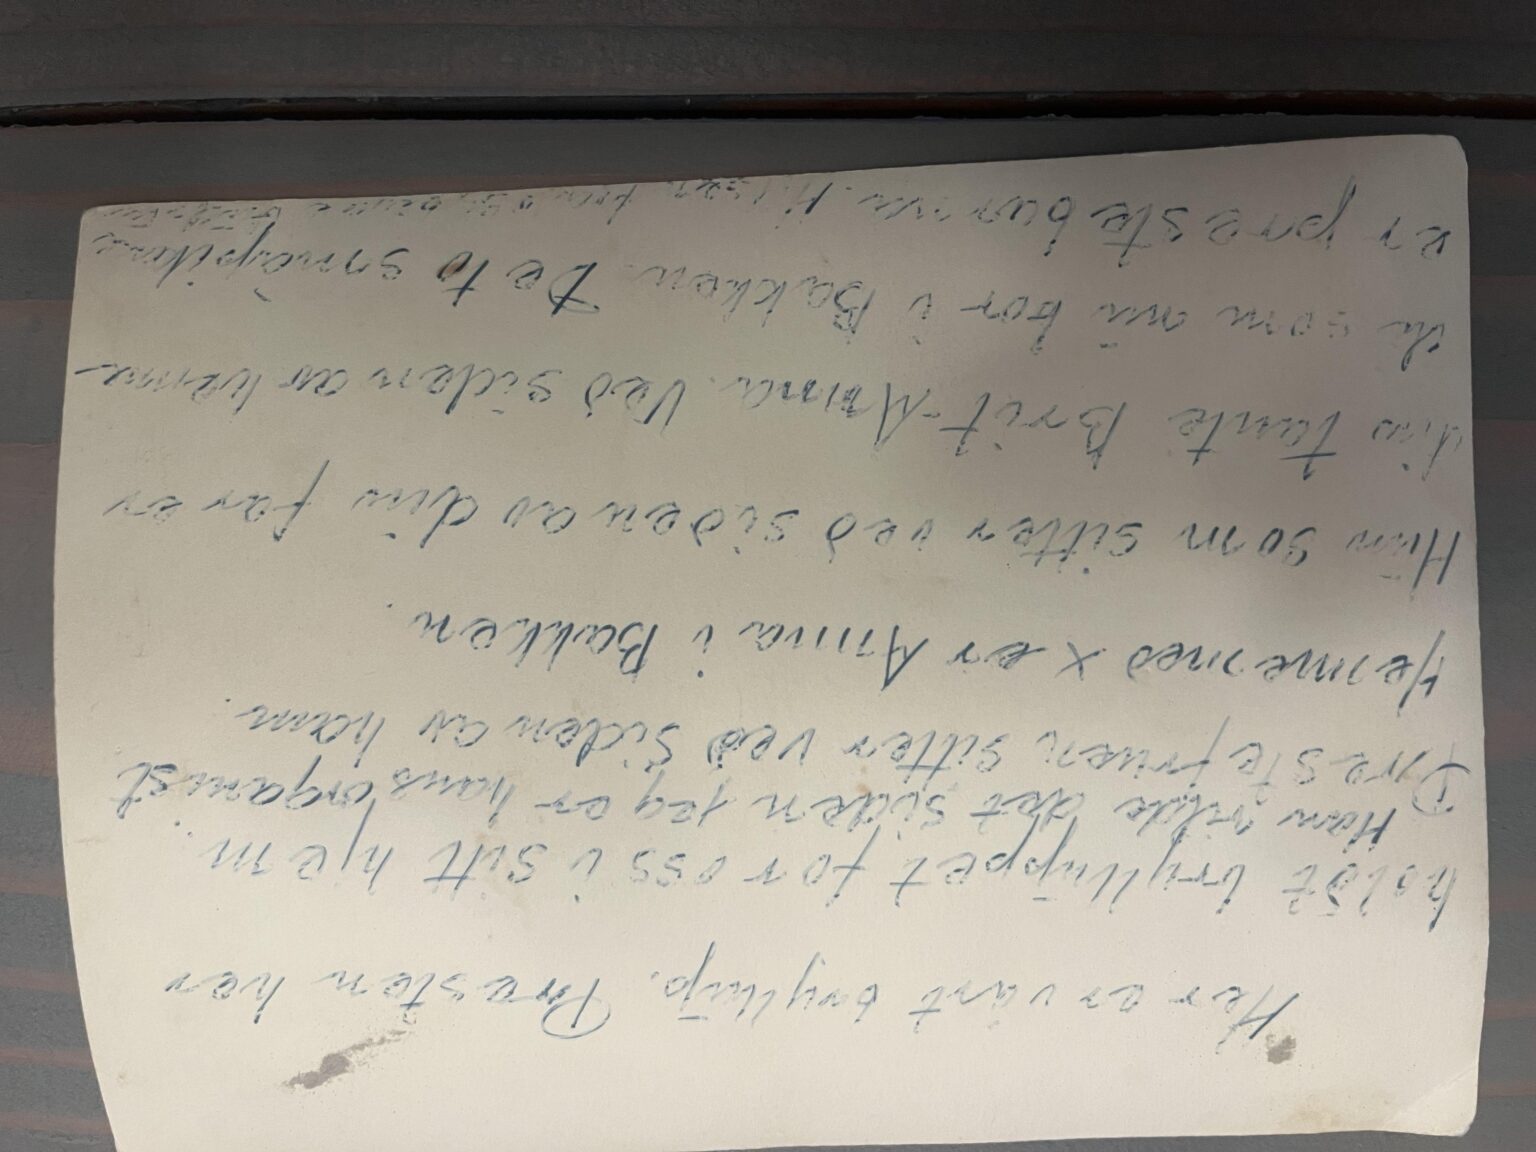 Her er vårt bryllup. Presten her
holdt bryllupet for oss i sitt hjem.
Han vilde det siden jeg er hans organist.
Prestefruen sitter ved siden av ham.
Henne med x er Anna i Bakken.
Hun som sitter ved siden av din far er
din tante Brit-Anna. Ved siden av henne
du som nu bor i Bakken. De to småpikene
er prestebarna. Hilsen fra oss